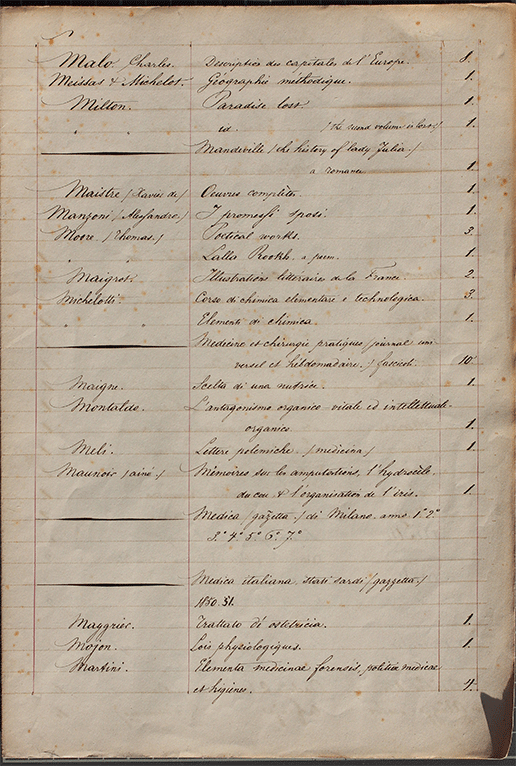 Malo Charles. Description des capitales de l'Europe. 8.
Meissas & Michelot. Géographie méthodique. 1.
Milton. Paradise lost 1.
" " id. /the second volume is lost/ 1.
Mandeville /the history of lady Julia/
a romance 1.
Maistre /Xavier de/ Oeuvres complètes. 1.
Manzoni /Alessandro/ I promessi sposi. 1.
Moore /Thomas./ Poetical works. 3.
" " Lalla Rookh. a poem. 1.
Maigrot. Illustrations littéraires de la France 2.
Michelotti. Corso di chimica elementare e technologica. 3.
" " Elementi di chimica. 1.
Medecine et chirurgie pratiques /journal uni-
versel et hebdomadaire./ fascicoli. 10.
Maigne. Scelta di una nutrice. 1.
Montaldo. L'antagonismo organico-vitale ed intellettuale-
organico. 1.
Meli. Lettere polemiche. /medicina/ 1.
Maunoir /ainé./ Mémoires sur les amputations, l'hydrocèle
du cou & l'organisation de l'iris. 1.
Medica /gazzetta./ di Milano. anno 1.° 2.°
3.° 4.° 5.° 6.° 7.°
Medica italiana, stati sardi /gazzetta./
1850. 51.
Maygrier. Trattato di ostetricia. 1.
Mojon. Lois physiologiques. 1.
Martini. Elementa medicinae forensis, politiae medicae
et hygienes. 4.